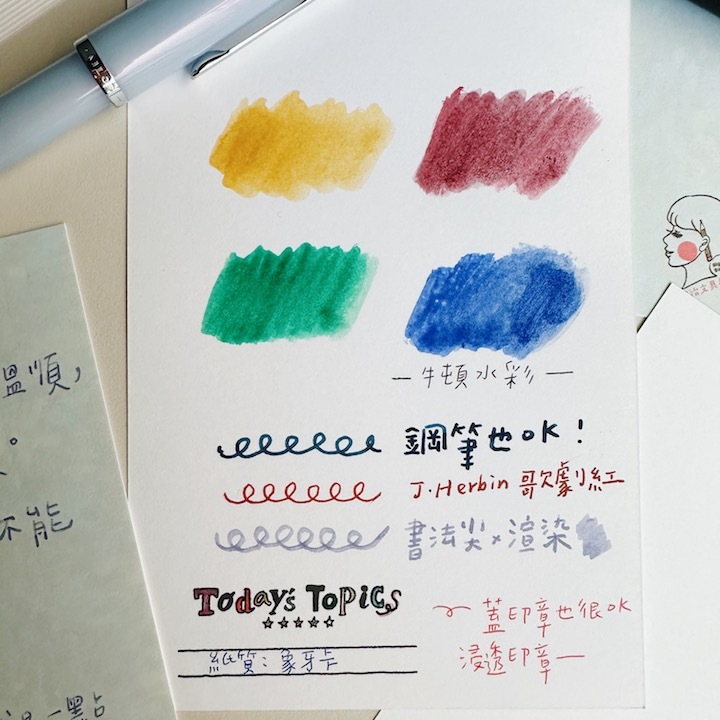 溫順,
。
不能
一點
文具
一牛頓水彩一
鋼筆也OK!
J.Herbin 歌劇紅
書法尖×渲染
Today's Topics
蓋印章也很OK
浸透印章一
紙質:象牙卡